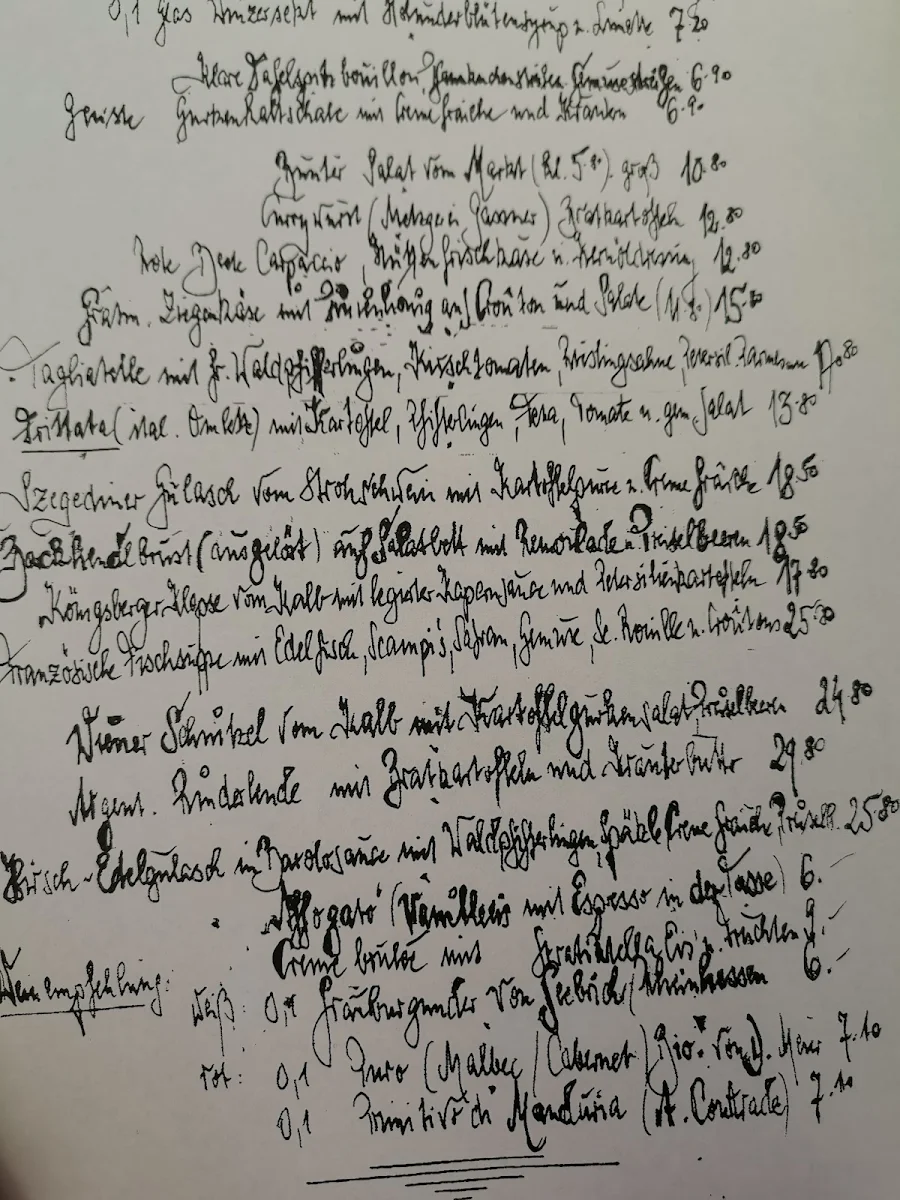 0,1 Glas Winzersekt mit Holunderblütensyrup u. Limette 7.20
Klare Tafelspitzbouillon, Gemüsestreifen 6.90
Gurkenkaltschale mit Creme fraiche und Kräutern 6.90
Bunter Salat vom Markt (kl. 5.80) groß 10.80
Currywurst (Metzgerei Gassner) Bratkartoffeln 12.80
Rote Bete Carpaccio, Hüttenfrischkäse u. 12.80
Gratin. Ziegenkäse mit auf Croûton und Salate 15.80
Tagliatelle mit fr. Waldpfifferlingen, Kirschtomaten, Rieslingsahne, Petersil. Parmesan 17.80
Frittata (ital. Omlett) mit Kartoffel, Pfifferlingen, Feta, Tomate u. gem. Salat 13.80
Szegediner Gulasch vom Strohschwein mit Kartoffelpüree u. Creme fraiche 18.50
Backhendlbrust (ausgelöst) auf Salatbett mit Remoulade u. Preiselbeeren 18.50
Königsberger Klopse vom Kalb mit legierter Kapernsauce und Petersilienkartoffeln 17.80
Französische Fischsuppe mit Edelfisch, Scampi's, Safran, Gemüse, Sc. Rouille u. Croûtons 25.80
Wiener Schnitzel vom Kalb mit Kartoffelgurkensalat, Preiselbeeren 24.80
Argent. Rinderlende mit Bratkartoffeln und Kräuterbutter 29.80
Hirsch-Edelgulasch in Barolosauce mit Waldpfifferlingen, Spätzle Creme fraiche, Preiselb. 25.80
"Affogato" (Vanilleeis mit Espresso in der Tasse) 6.-
Creme brulée mit Stratiatella Eis u. Früchten 9.-
Weinempfehlung:
weiß: 0,1 Grauburgunder von Seebrich/Rheinhessen 6.-
rot: 0,1 Puro (Malbec/Cabernet) "Bio" von D. Meier 7.10
0,1 Primitivo di Manduria (A. Contrade) 7.10